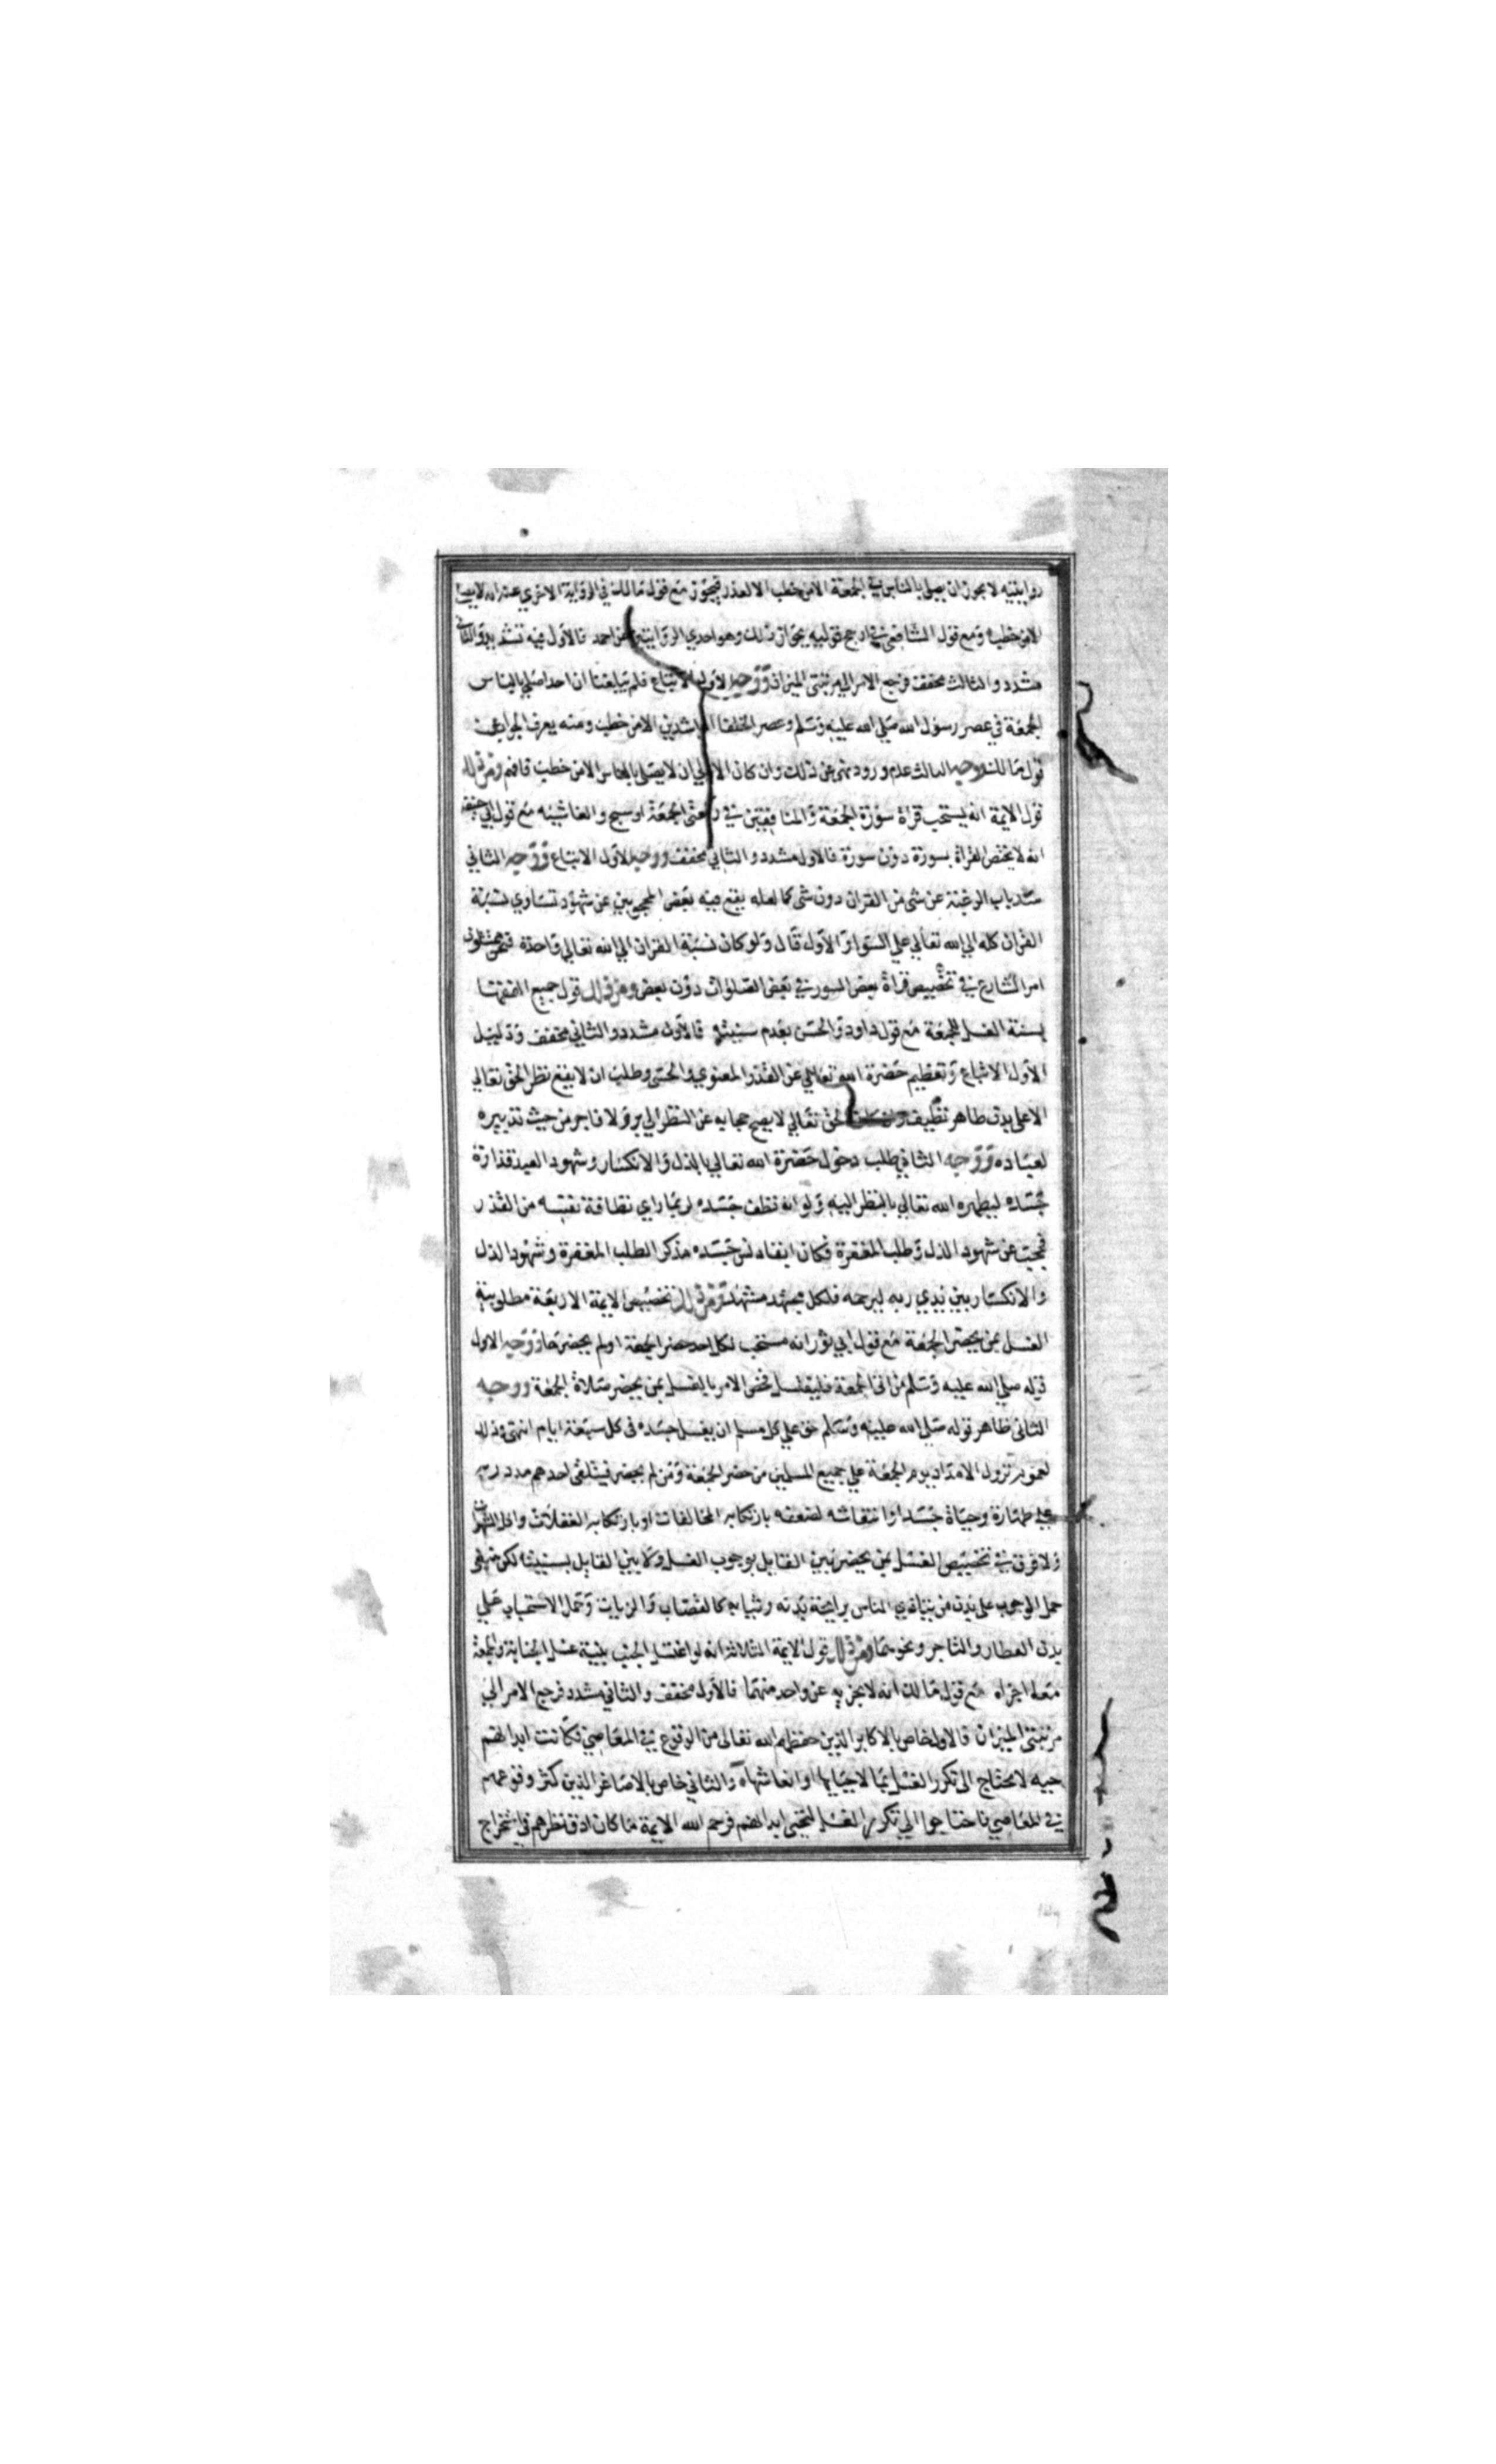 روايتيه لا يجوز ان يصلي بالناس في الجمعة الا من خطب الا لعذر فيجوز مع قول مالك في الرواية الاخري عنه انه لا يصلي
الا من خطب ومع قول الشافعي في ارجح قوليه بجواز ذلك وهو احدي الروايتين عن احمد فالاول فيه تشديد والثاني
مشدد والثالث مخفف فرجع الامر الي مرتبتي الميزان ووجه الاول الاتباع فلم يبلغنا ان احدا صلي بالناس
الجمعة في عصر رسول الله صلي الله عليه وسلم وعصر الخلفا الراشدين الا من خطب ومنه يعرف الجواب عن
قول مالك ووجه الثالث عدم ورود نهي عن ذلك وان كان الاولي ان لا يصلي بالناس الا من خطب فافهم ومن ذلك
قول الايمة انه يستحب قراة سورة الجمعة والمنافقين في ركعتي الجمعة او سبح والغاشيه مع قول ابي حنيفة
انه لا يختص القراة بسورة دون سورة فالاول مشدد والثاني مخفف ووجه الاول الاتباع ووجه الثاني
سد باب الرغبة عن شي من القران دون شي كما لعله يقع فيه بعض المحجوبين عن شهود تساوي نسبة
القران كله الي الله تعالي علي السوا واز الاول قال ولو كان نسبة القران الي الله تعالي واحدة فنحن ممتثلون
امر الشارع في تخصيص قراة بعض السور في بعض الصلوات دون بعض ومن ذلك قول جميع الفقها
بسنة الغسل للجمعة مع قول داود والحسن بعدم سنيته فالاول مشدد والثاني مخفف ودليل
الاول الاتباع وتعظيم حضرة الله تعالي عن القذر المعنوي والحسي وطلب ان لا يقع نظر الحق تعالي
الا علي بدن طاهر نظيف الحق تعالي لا يصح حجابه عن النظر الي بر ولا فاجر من حيث تدبيره
لعباده ووجه الثاني طلب دخول حضرة الله تعالي بالذل والانكسار وشهود العبد قذارة
جسده ليطهره الله تعالي بالنظر اليه ولو انه نظف جسده لربما راي نظافة نفسه من القذر
فحجب عن شهود الذل وطلب المغفرة فكان ابقاء دنس جسده مذكرا لطلب المغفرة وشهود الذل
والانكسار بين يدي ربه ليرحمه فلكل مجتهد مشهد ومن ذلك تخصيص الايمة الاربعة مطلوبية
الغسل بمن يحضر الجمعة مع قول ابي ثور انه مستحب لكل احد حضر الجمعة او لم يحضرها ووجه الاول
قوله صلي الله عليه وسلم من اتي الجمعة فليغتسل فخص الامر بالغسل بمن يحضر صلاة الجمعة ووجه
الثاني ظاهر قوله صلي الله عليه وسلم حق علي كل مسلم ان يغسل جسده في كل سبعة ايام انتهي وذلك
لعموم نزول الامداد يوم الجمعة علي جميع المسلمين من حضر الجمعة ومن لم يحضر فيتلقي احدهم مدد ربه
علي طهارة وحياة جسد او انتعاشه لضعفه بارتكابه المخالفات او بارتكابه الغفلات واكل الشهوات
ولا فرق في تخصيص الغسل بمن يحضر بين القايل بوجوب الغسل ولا بين القايل بسنيته لكن ينبغي
حمل الوجوب علي بدن من يتاذي الناس برايحة بدنه وثيابه كالقصاب والزيات وحمل الاستحباب علي
بدن العطار والتاجر ونحوهما ومن ذلك قول الايمة الثلاثة انه لو اغتسل الجنب بنية غسل الجنابة والجمعة
معا اجزاه مع قول مالك انه لا يجزيه عن واحد منهما فالاول مخفف والثاني مشدد فرجع الامر الي
مرتبتي الميزان فالاول خاص بالاكابر الذين حفظهم الله تعالي من الوقوع في المعاصي فكانت ابدانهم
حيه لا تحتاج الي تكرر الغسل بما لاحيايها او انعاشها والثاني خاص بالاصاغر الذين كثر وقوعهم
في المعاصي فاحتاجوا الي تكرر الغسل لتحيي ابدانهم فرحم الله الايمة ما كان ادق نظرهم في استخراج